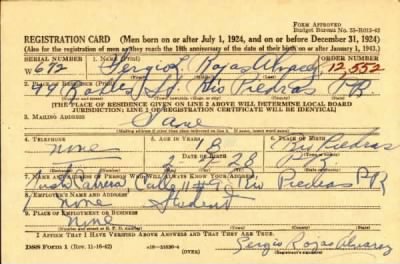 FORM APPROVED
Budget Bureau No. 33-R012-42
REGISTRATION CARD (Men born on or after July 1, 1924, and on or before December 31, 1924)
(Also for the registration of men as they reach the 18th anniversary of the date of their birth on or after January 1, 1943.)
SERIAL NUMBER 1. NAME (Print) ORDER NUMBER
W 672 Sergio Rojas Alvarez 12,552
St. Rio Piedras P R
[THE PLACE OF RESIDENCE GIVEN ON LINE 2 ABOVE WILL DETERMINE LOCAL BOARD
JURISDICTION; LINE 2 OF REGISTRATION CERTIFICATE WILL BE IDENTICAL]
3. MAILING ADDRESS
Same
4. TELEPHONE 5. AGE IN YEARS 6. PLACE OF BIRTH
none 18 Rio Piedras
DATE OF BIRTH
28 P R
7. NAME AND ADDRESS OF PERSON WHO WILL ALWAYS KNOW YOUR ADDRESS
Cabrera, Calle Rio Piedras P R
8. EMPLOYER'S NAME AND ADDRESS
none Student
9. PLACE OF EMPLOYMENT OR BUSINESS
none
I AFFIRM THAT I HAVE VERIFIED ABOVE ANSWERS AND THAT THEY ARE TRUE.
DSS Form 1 (Rev. 11-16-42) (OVER) Sergio Rojas Alvarez